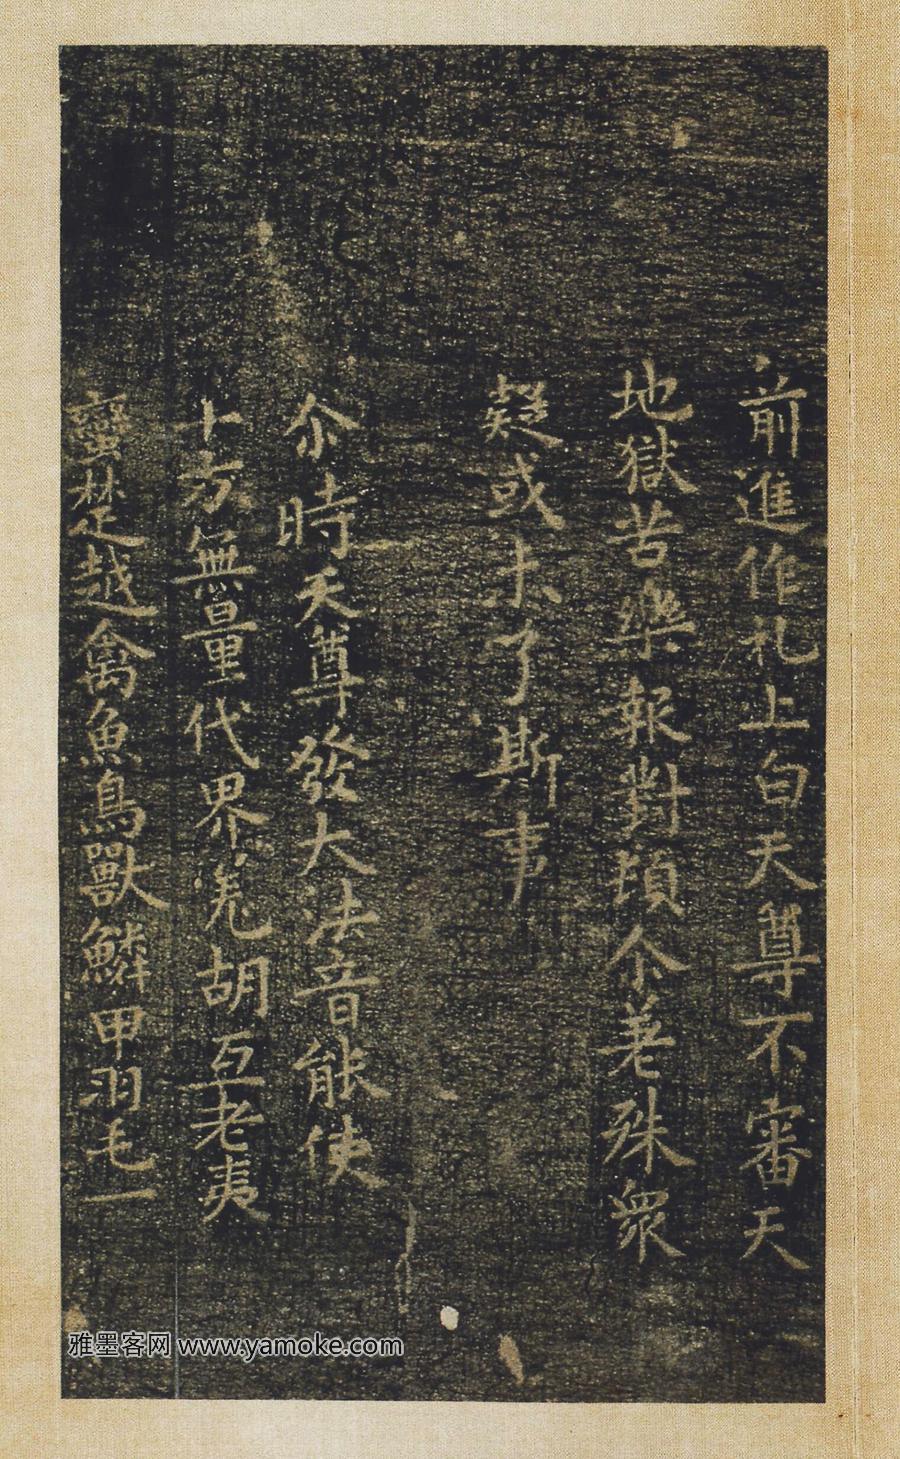 前進作礼上白天尊不審天
地獄苦樂報對頓尒差殊衆
疑或未了斯事
尒時天尊發大法音能使
十方無量代界羌胡互老夷
蠻楚越禽魚鳥獸鱗甲羽毛一
雅墨客网 www.yamoke.com